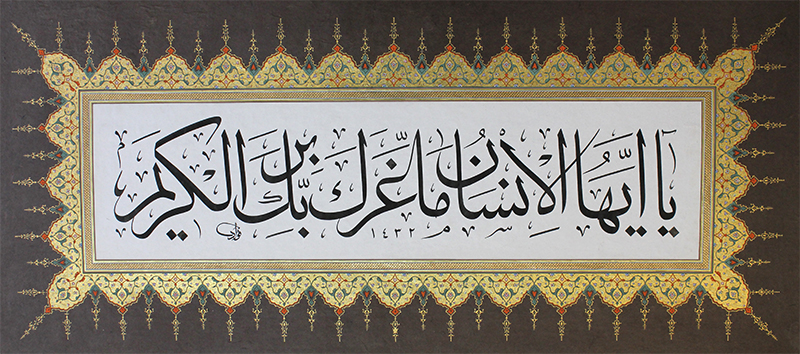 يا ايها الإنسان ما غرك بربك الكريم
١٤٣٢